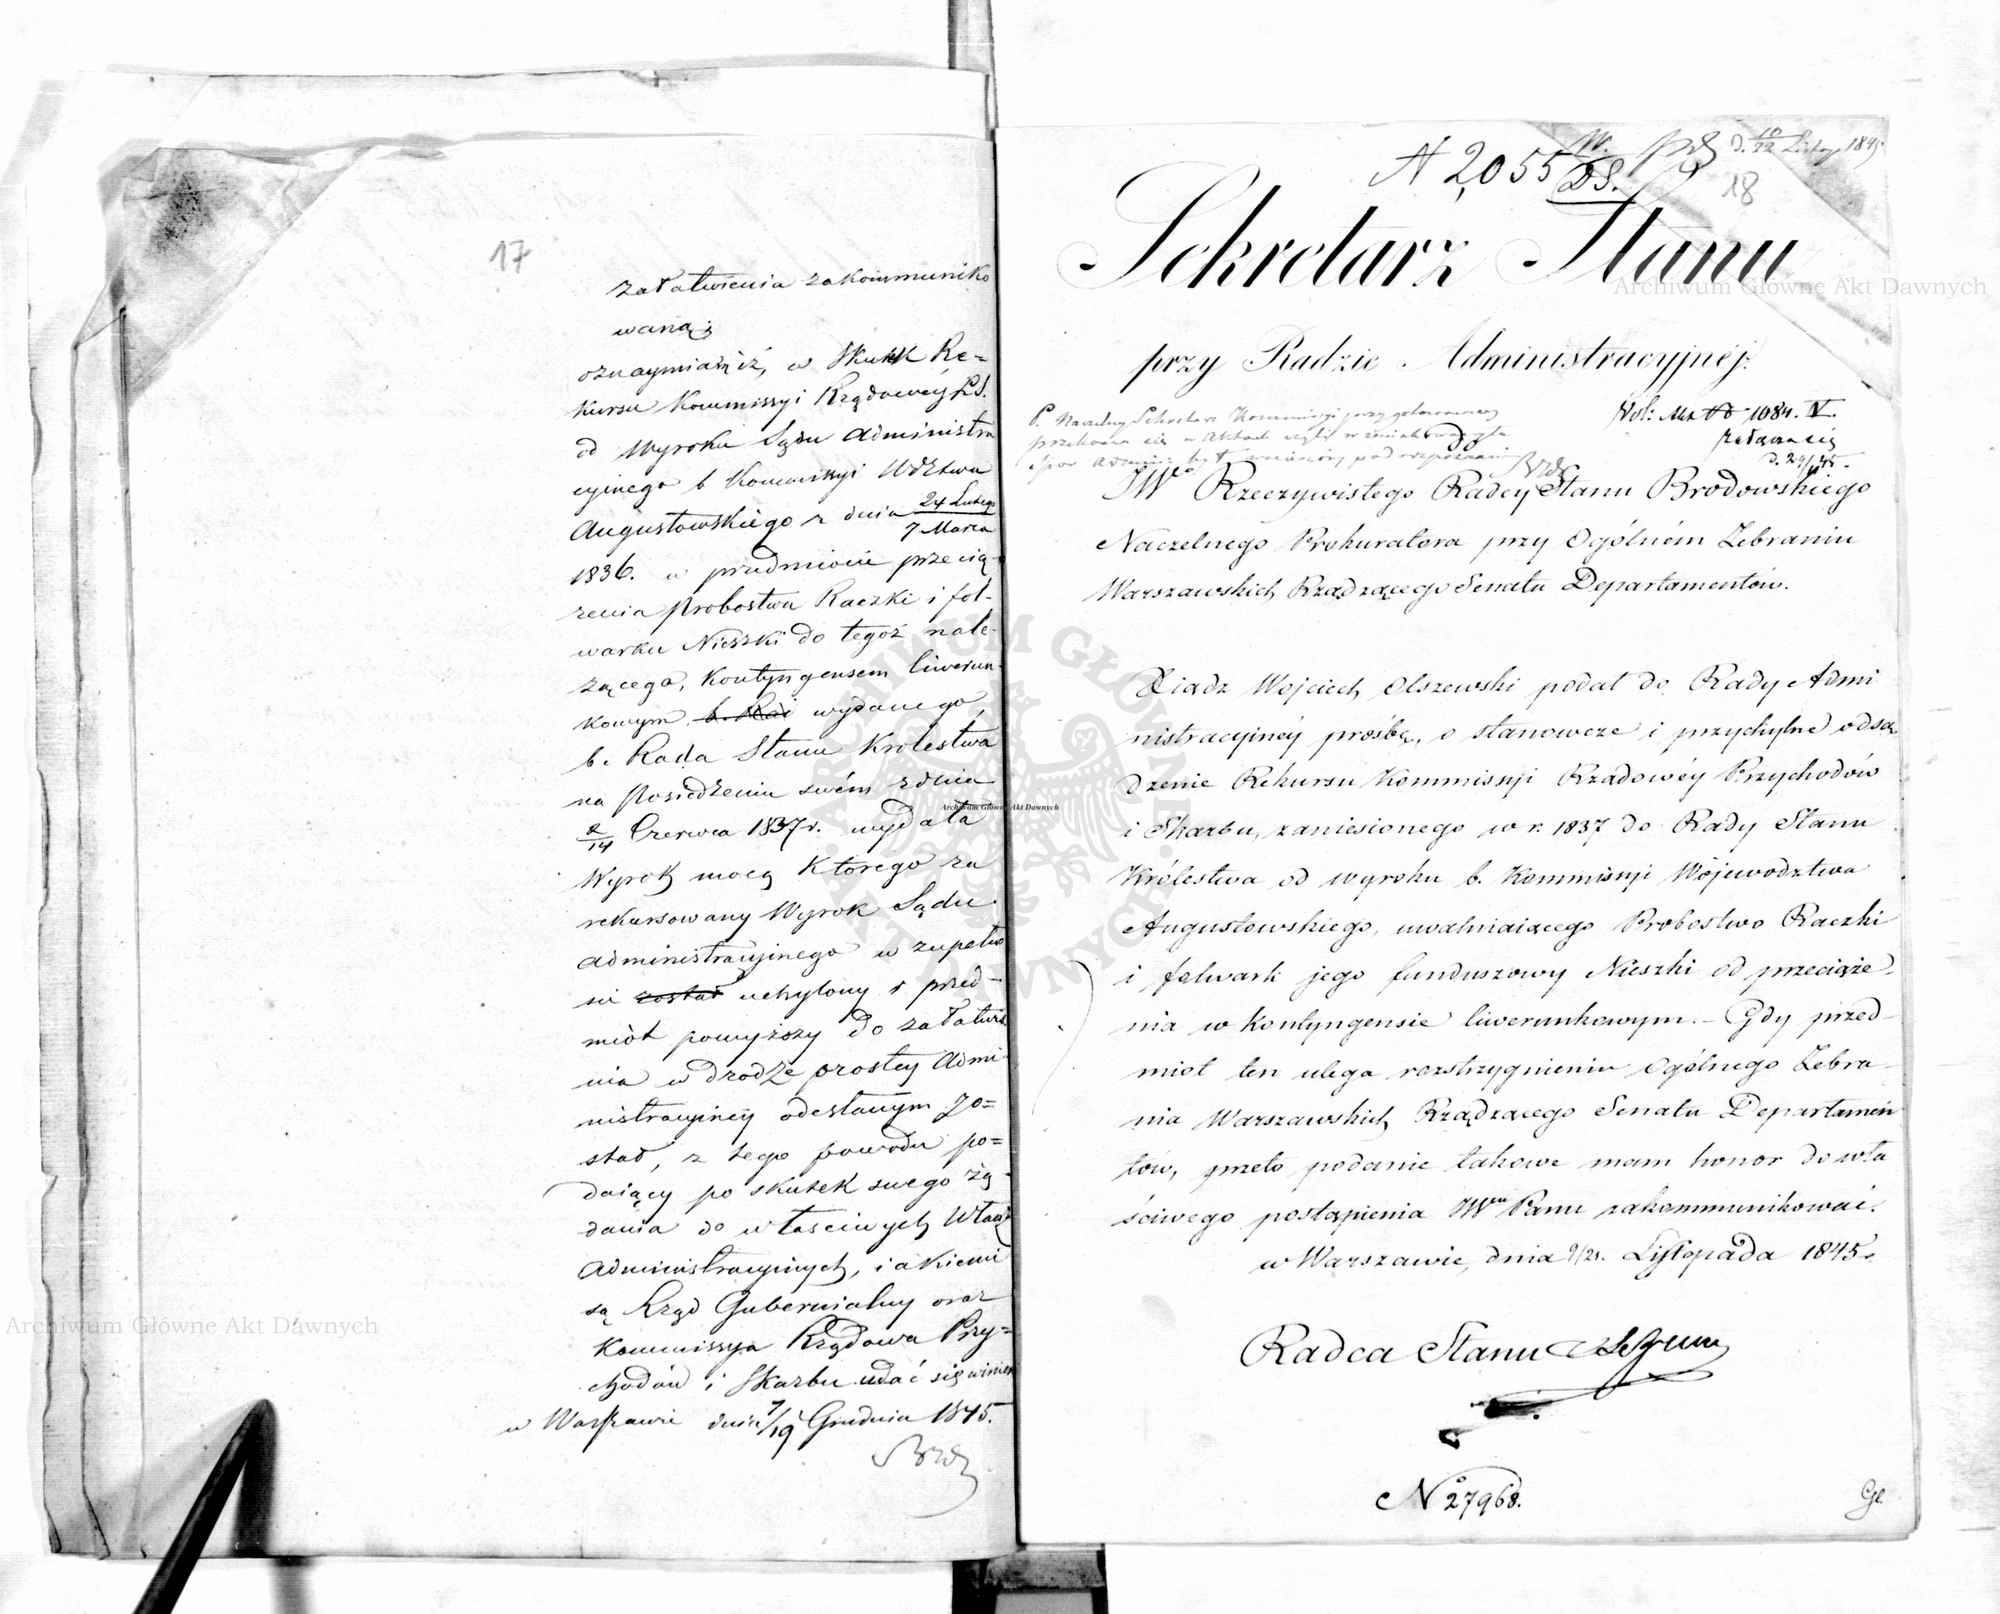 17
załatwienia zakommuniko
waną;
oznaymia iż, w skutek Re=
kursu Kommissyi Rządowey P.S.
od Wyroku Sądu Administra
cyjnego b Kommissyi Wdztwa
Augustowskiego z dnia 24 Lutego / 7 Marca
1836. w przedmiocie przecią-
żenia Probostwa Raczki i fol-
warku Nieszki do tegoż nale-
żącego, Kontyngensem liwerun-
kowym wydanego,
b. Rada Stanu Królestwa
na Posiedzeniu swém z dnia
2/14 Czerwca 1837 r. wydała
Wyrok mocą którego za
rekursowany Wyrok Sądu
Administracyjnego w zupełno
ści został uchylony i przed-
miot powyższy do załatwie
nia w drodze prostey Admi-
nistracyiney odesłanym zo=
stał, z tego powodu po=
daiący po skutek swego żą-
dania do właściwych Władz
Administracyinych, iakiemi
są Rząd Gubernialny oraz
Kommissya Rządowa Przy=
chodów i Skarbu udać się winien
w Warszawie dnia 7/19 Grudnia 1845.
N 2,055
d. 10/22 Listop 1845
18
Sekretarz Stanu
przy Radzie Administracyjnéj.
P. Naczelny Sekretarz Kommissyi
Vol: 1084. IV.
załącza się
JWo Rzeczywistego Radcy Stanu Brodowskiego
Naczelnego Prokuratora przy Ogólném Zebraniu
Warszawskich Rządzącego Senatu Departamentów.
Xiądz Wojciech Olszewski podał do Rady Admi
nistracyjnéj prośbę, o stanowcze i przychylne odsą
dzenie Rekursu Kommissyi Rządowéy Przychodów
i Skarbu, zaniesionego w r. 1837 do Rady Stanu
Królestwa od wyroku b. Kommissyi Województwa
Augustowskiego, uwalniaiącego Probostwo Raczki
i folwark jego funduszowy Nieszki od przeciąże-
nia w kontyngensie liwerunkowym. – Gdy przed-
miot ten ulega rozstrzygnieniu Ogólnego Zebra-
nia Warszawskich Rządzącego Senatu Departamen
tów, przeto podanie takowe mam honor do wła
ściwego postąpienia JWmu Panu zakommunikować.
w Warszawie, dnia 9/21. Listopada 1845.
Radca Stanu
No 27968.
Archiwum Główne Akt Dawnych
Archiwum Główne Akt Dawnych
Archiwum Główne Akt Dawnych
ARCHIWUM GŁÓWNE AKT DAWNYCH